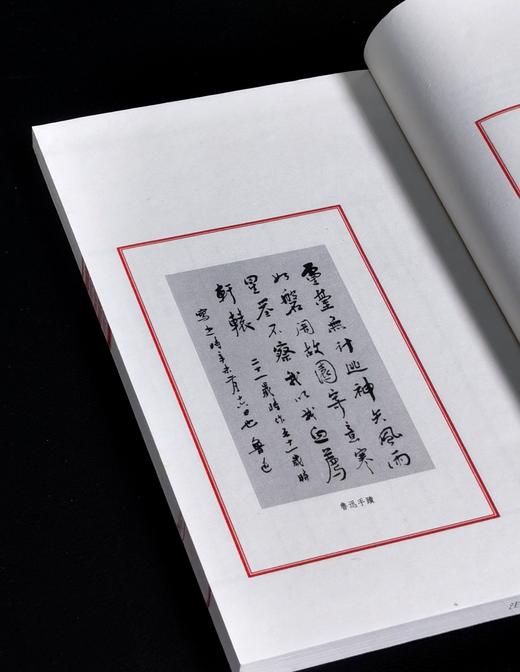 靈臺無計逃神矢風雨
如磐闇故園寄意寒
星荃不察我以我血薦
軒轅
二十一歲時作五十一歲時
寫之時辛未二月十六日也 魯迅
魯迅手蹟